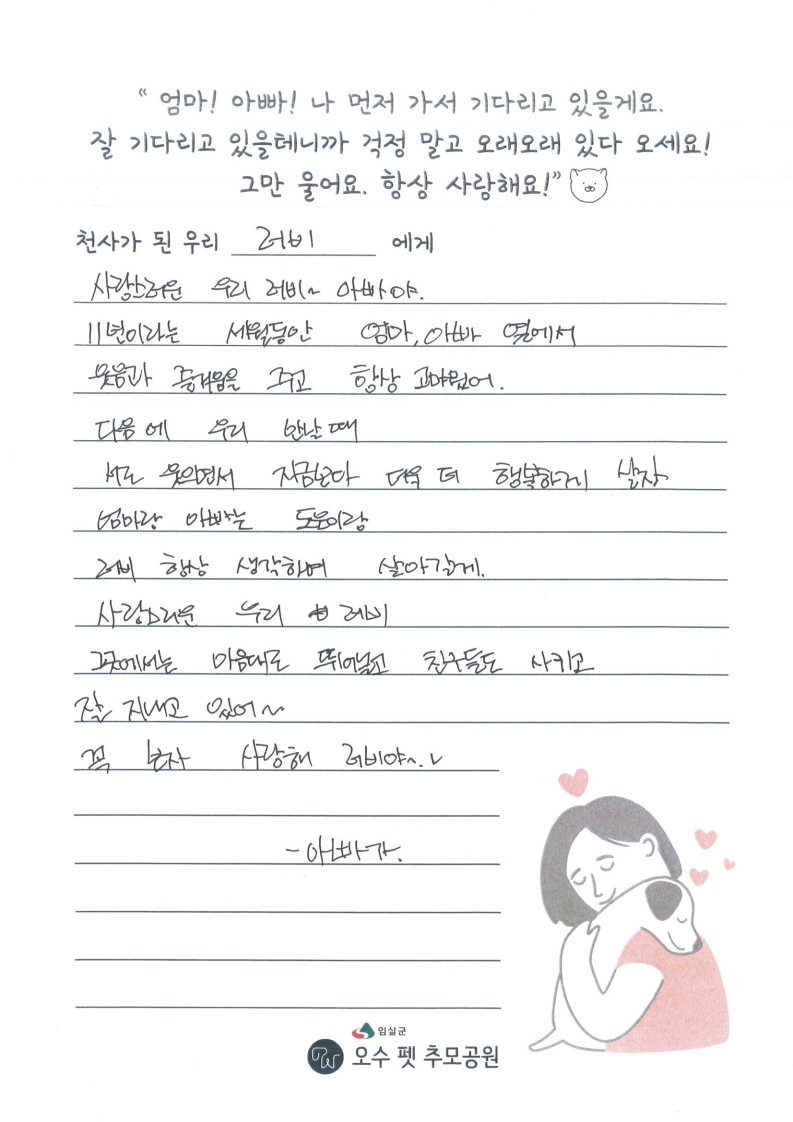 “ 엄마! 아빠! 나 먼저 가서 기다리고 있을게요.
잘 기다리고 있을테니까 걱정 말고 오래오래 있다 오세요!
그만 울어요. 항상 사랑해요!”
천사가 된 우리 러비 에게
사랑스러운 우리 러비~ 아빠야.
11년이라는 세월동안 엄마, 아빠 옆에서
웃음과 즐거움을 주고 항상 고마웠어.
다음에 우리 만날 때
서로 웃으면서 지금보다 더욱 더 행복하게 살자
엄마랑 아빠는
러비 항상 생각하며 살아갈게.
사랑스러운 우리 러비
그곳에서는 마음대로 뛰어놀고 친구들도 사귀고
잘 지내고 있어~
꼭 보자 사랑해 러비야~
- 아빠가.
임실군
오수 펫 추모공원